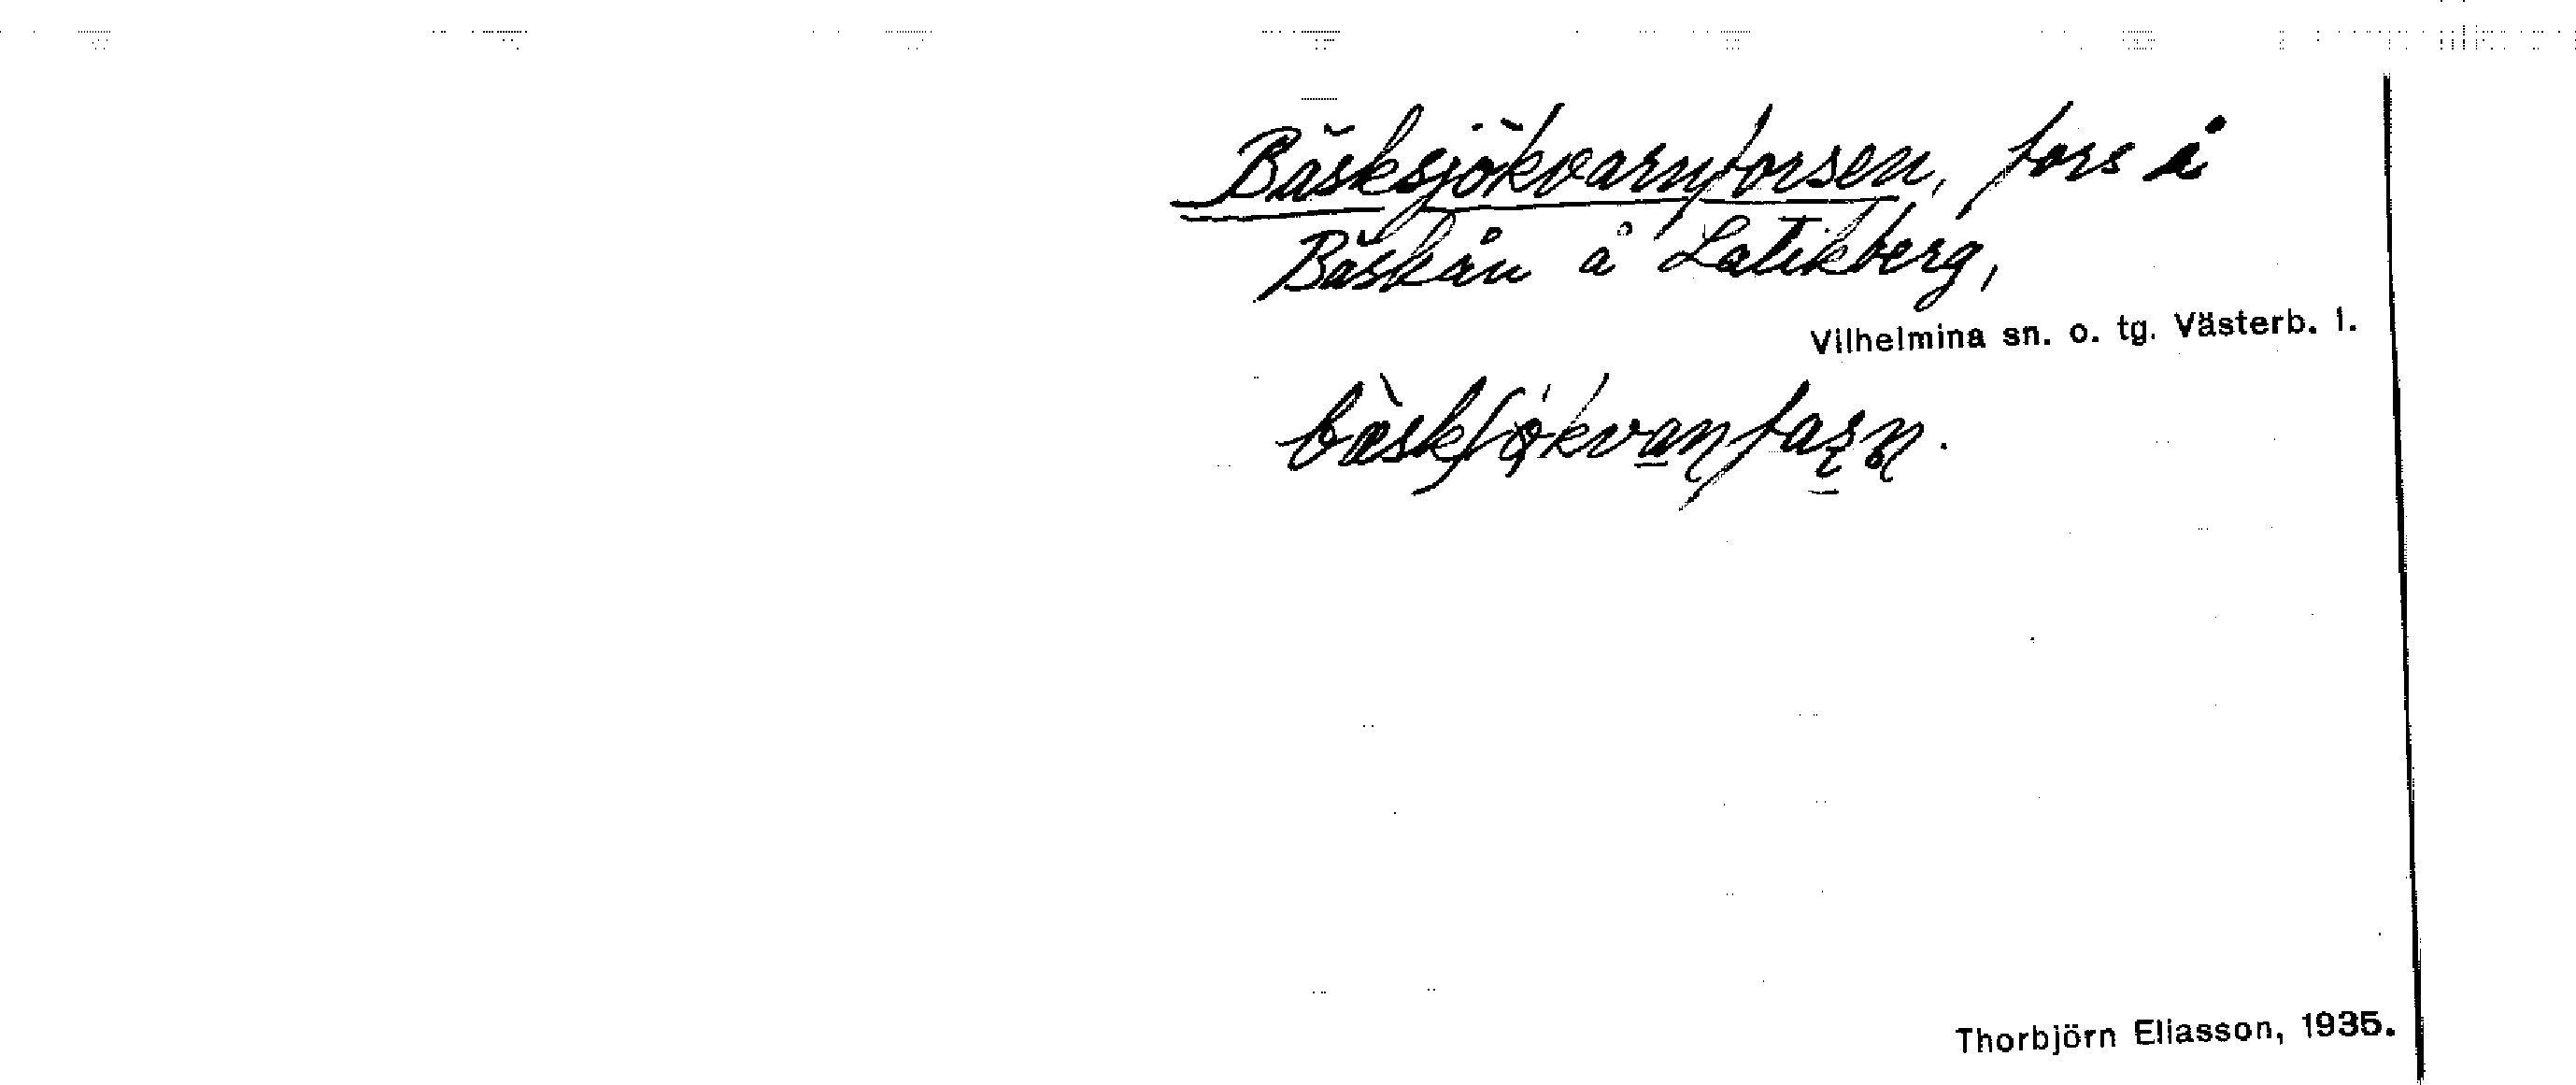 Bäsksjökvarnforsen, fors å
Bäskån å Latikberg,
Vilhelmina sn. o. tg. Västerb. l.
Thorbjörn Eliasson, 1935.